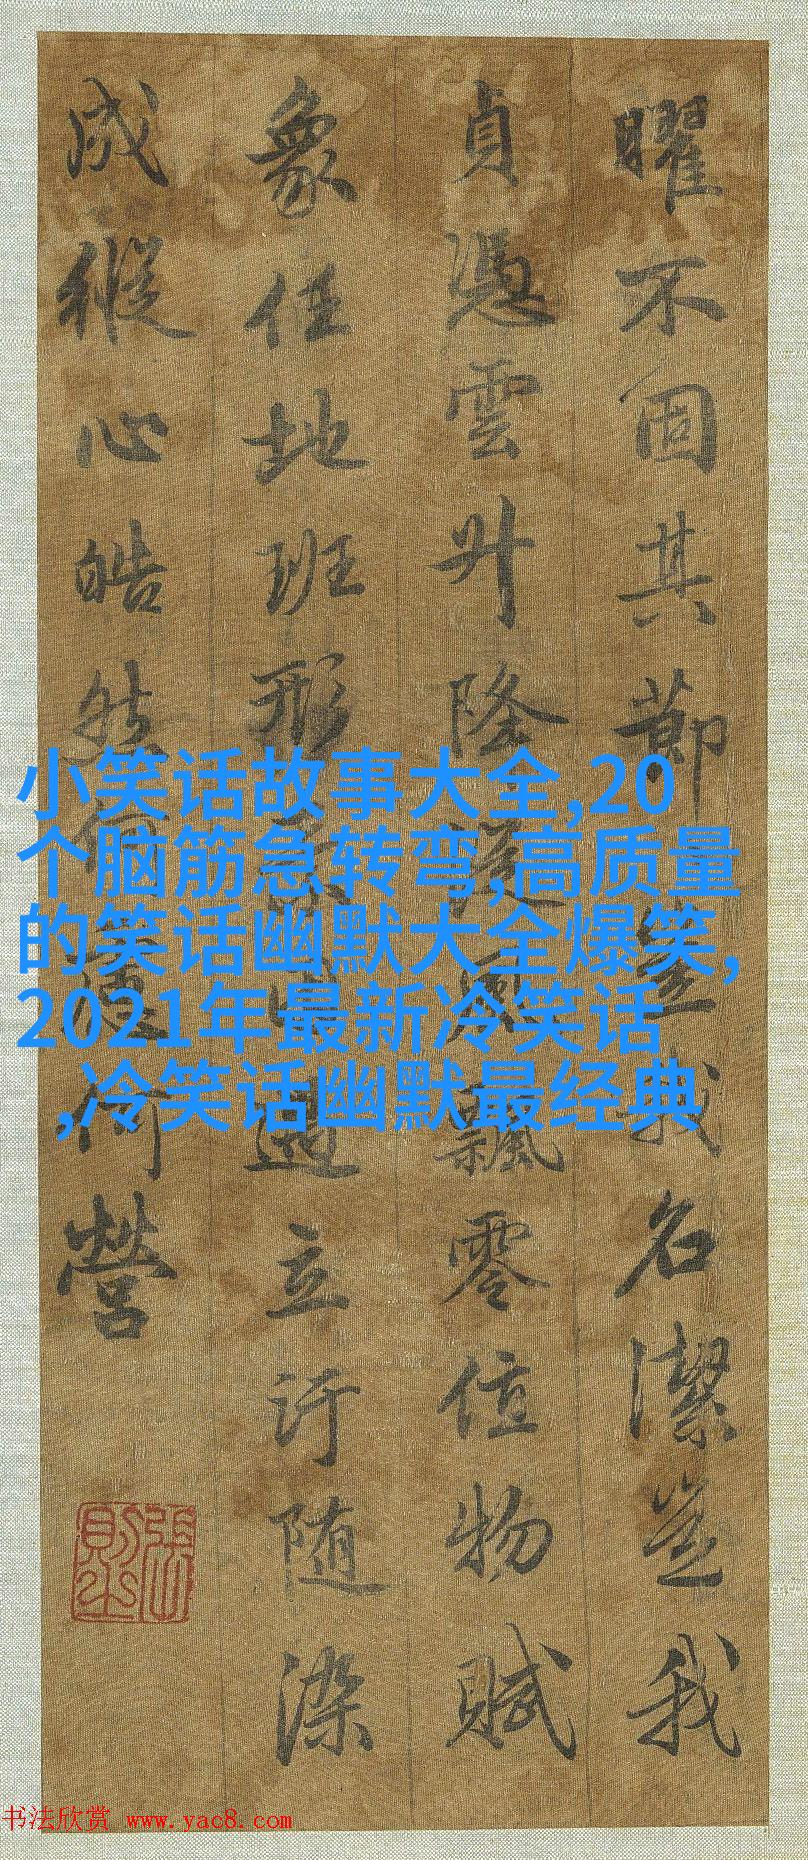 曜不固其節豈我名潔豈我
貞憑雲升降從風飄零值物賦
象任地班形遇立汙随染
成縱心皓然何慮何營
小笑话故事大全,20
个脑筋急转弯,高质量
的笑话幽默大全爆笑,
2021年最新冷笑话
,冷笑话幽默最经典
书法欣赏 www.yac8.com